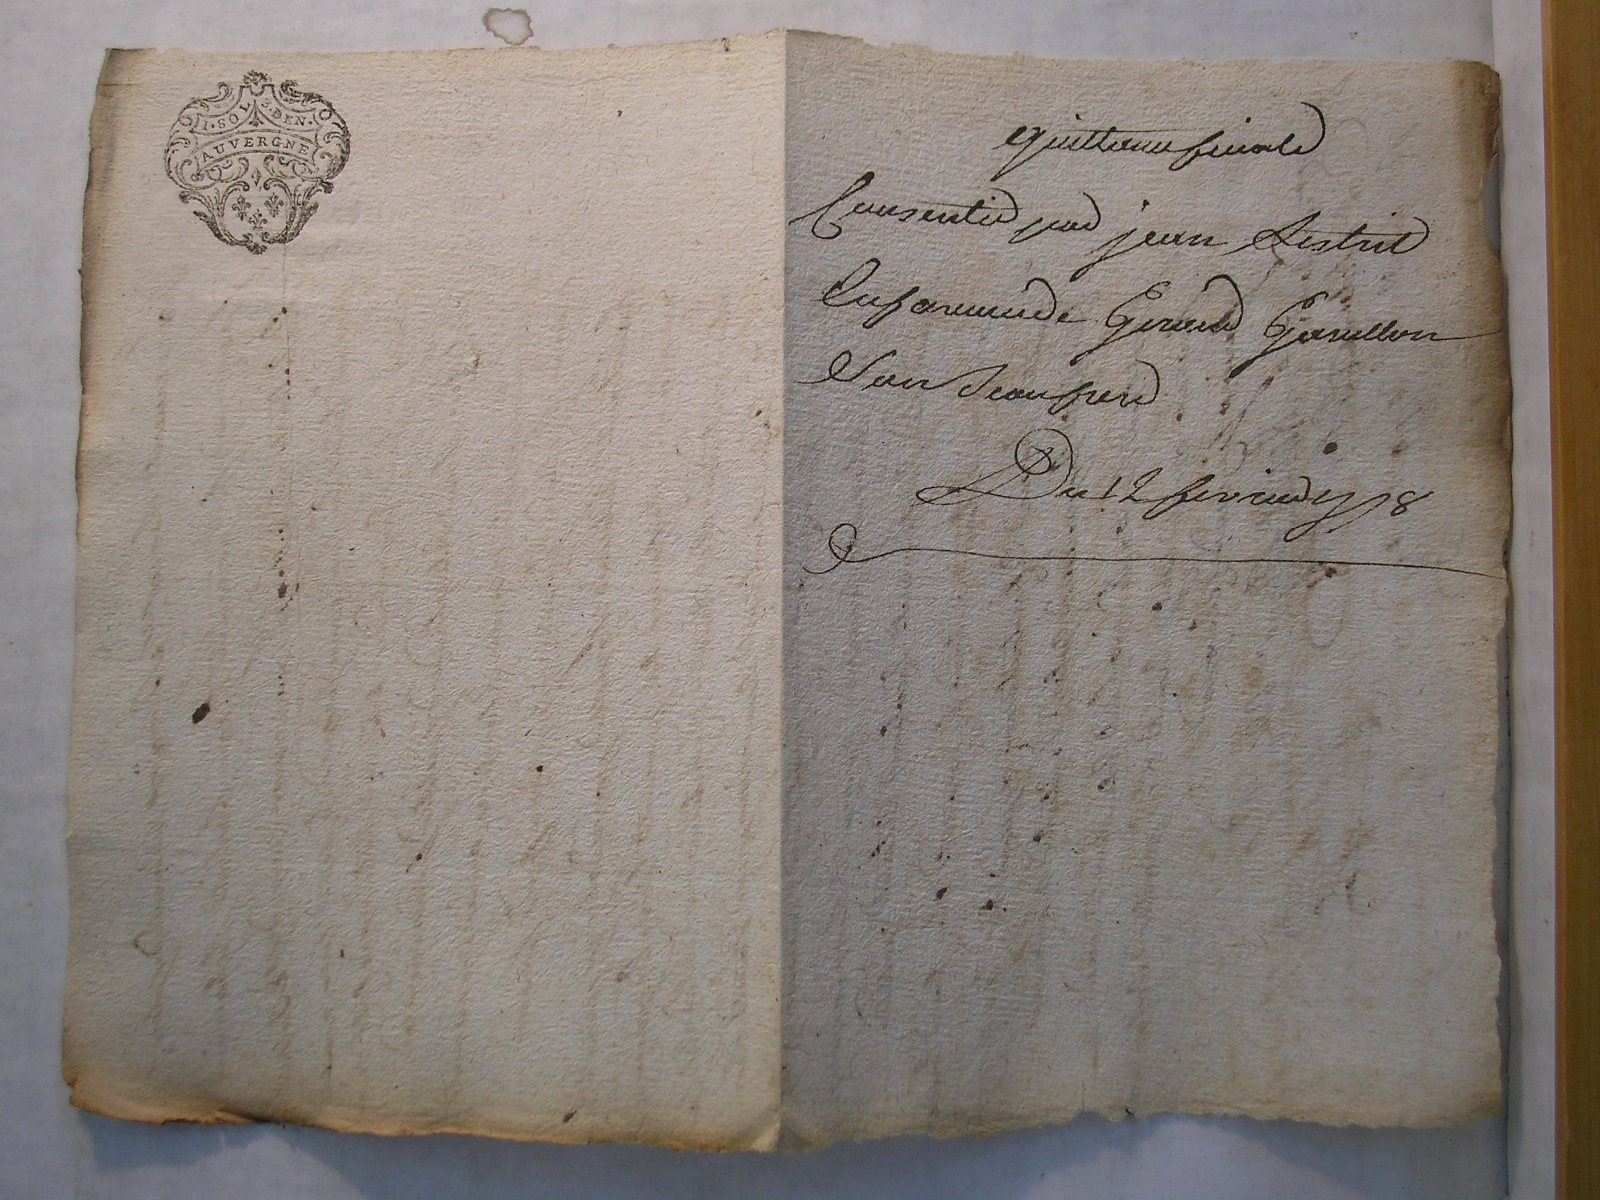 I · SOL 8 · DEN ·
AUVERGNE
quittance finale
Consentie par jean
En faveur de Gerard
Son beau frere
Du 12 fevrier 1778